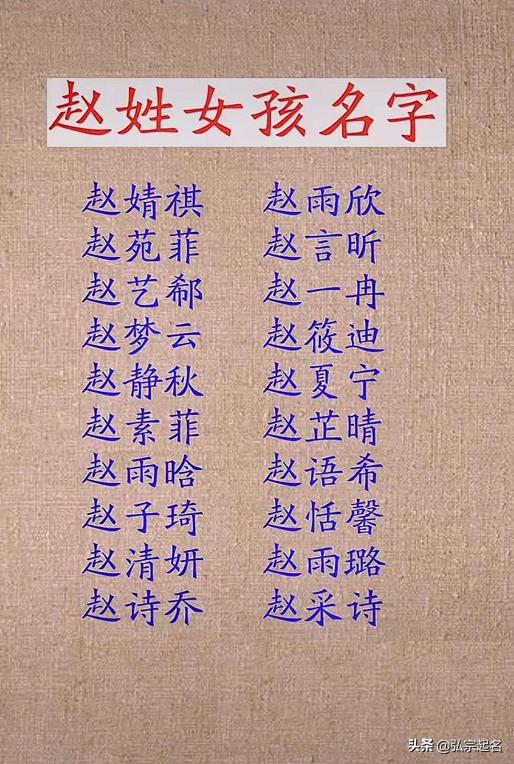 赵姓女孩名字
赵婧祺 赵雨欣
赵苑菲 赵言昕
赵艺郗 赵一冉
赵梦云 赵筱迪
赵静秋 赵夏宁
赵素菲 赵芷晴
赵雨晗 赵语希
赵子琦 赵恬馨
赵清妍 赵雨璐
赵诗乔 赵采诗
头条 @弘宗起名